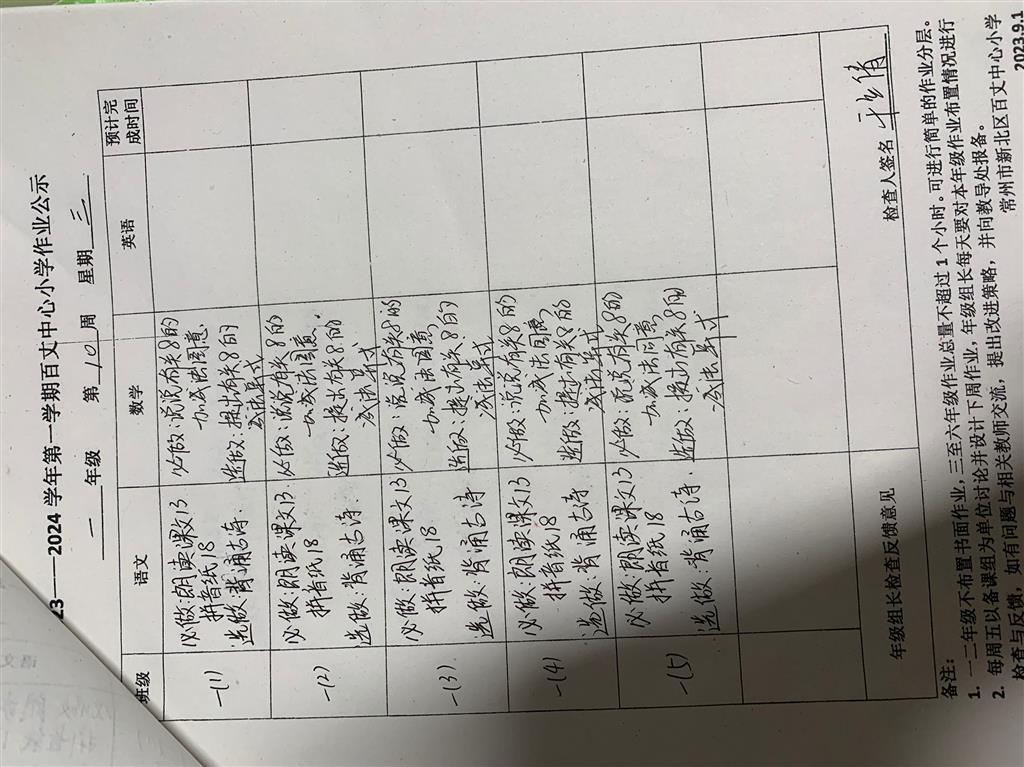 23——2024 学年第一学期百丈中心小学作业公示
一 年级 第 10 周 星期 三
班级 语文 数学 英语 预计完成时间
一(1)
必做:朗读课文13
拼音纸18
选做:背诵古诗.
必做:说说有关8的
加减法图意
选做:提出有关8的
减法算式
一(2)
必做:朗读课文13
拼音纸18
选做:背诵古诗
必做:说说有关8的
加减法图意.
选做:提出有关8的
减法算式
一(3)
必做:朗读课文13
拼音纸18
选做:背诵古诗
必做:说说有关8的
加减法图意
选做:提出有关8的
减法算式
一(4)
必做:朗读课文13
拼音纸18
选做:背诵古诗
必做:说说有关8的
加减法图意
选做:提出有关8的
减法算式
一(5)
必做:朗读课文13
拼音纸18
选做:背诵古诗
必做:说说有关8的
加减法图意
选做:提出有关8的
减法算式
年级组长检查反馈意见
检查人签名
备注:
1. 一二年级不布置书面作业,三至六年级作业总量不超过 1 个小时。可进行简单的作业分层。
2. 每周五以备课组为单位讨论并设计下周作业,年级组长每天要对本年级作业布置情况进行
检查与反馈,如有问题与相关教师交流,提出改进策略,并向教导处报备。
常州市新北区百丈中心小学
2023.9.1